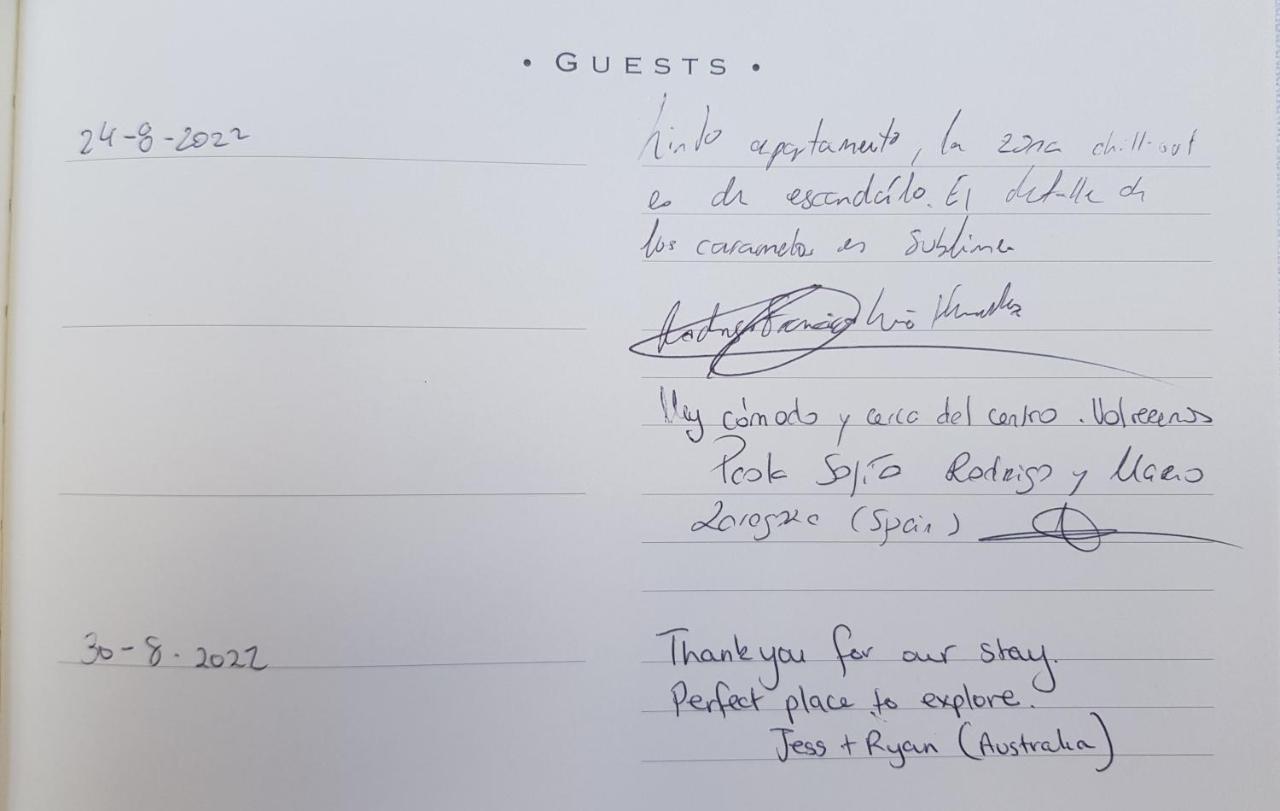 • GUESTS •
24-8-2022
Lindo apartamento, la zona chill-out
es de escandálo. El detalle de
los caramelos es sublime
Rodrigo Francisco
Muy cómodo y cerca del centro. Volveremos
Paola Sofía Rodrigo y Mario
Zaragoza (Spain)
30-8-2022
Thank you for our stay.
Perfect place to explore.
Jess + Ryan (Australia)